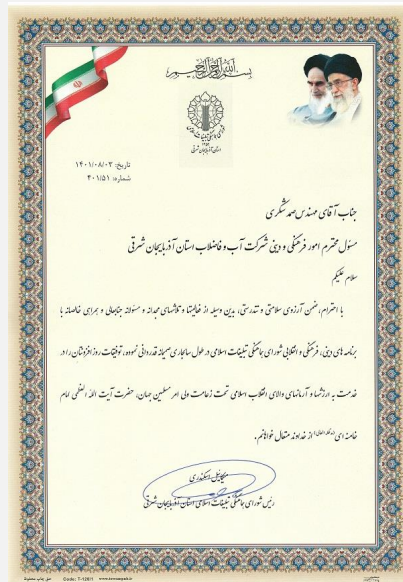 بسم الله الرحمن الرحیم
شورای هماهنگی تبلیغات اسلامی
استان آذربایجان شرقی
تاریخ: ۱۴۰۱/۰۸/۰۳
شماره: ۳۰۱/۵۱
جناب آقای مهندس صمد شکری
مسئول محترم امور فرهنگی و دینی شرکت آب و فاضلاب استان آذربایجان شرقی
سلام علیکم
با احترام، ضمن آرزوی سلامتی و تندرستی، بدین وسیله از فعالیتها و تلاشهای مجدانه و مسئولانه جنابعالی و همراهی خالصانه با
برنامه های دینی، فرهنگی و انقلابی شورای هماهنگی تبلیغات اسلامی در طول سالجاری صمیمانه قدردانی نموده، توفیقات روزافزونتان را در
خدمت به ارزشها و آرمانهای والای انقلاب اسلامی تحت زعامت ولی امر مسلمین جهان، حضرت آیت الله العظمی امام
خامنه ای (مدظله العالی) از خداوند متعال خواهانم.
میکائیل اسکندری
رئیس شورای هماهنگی تبلیغات اسلامی استان آذربایجان شرقی
حق چاپ محفوظ Code: T-128/1